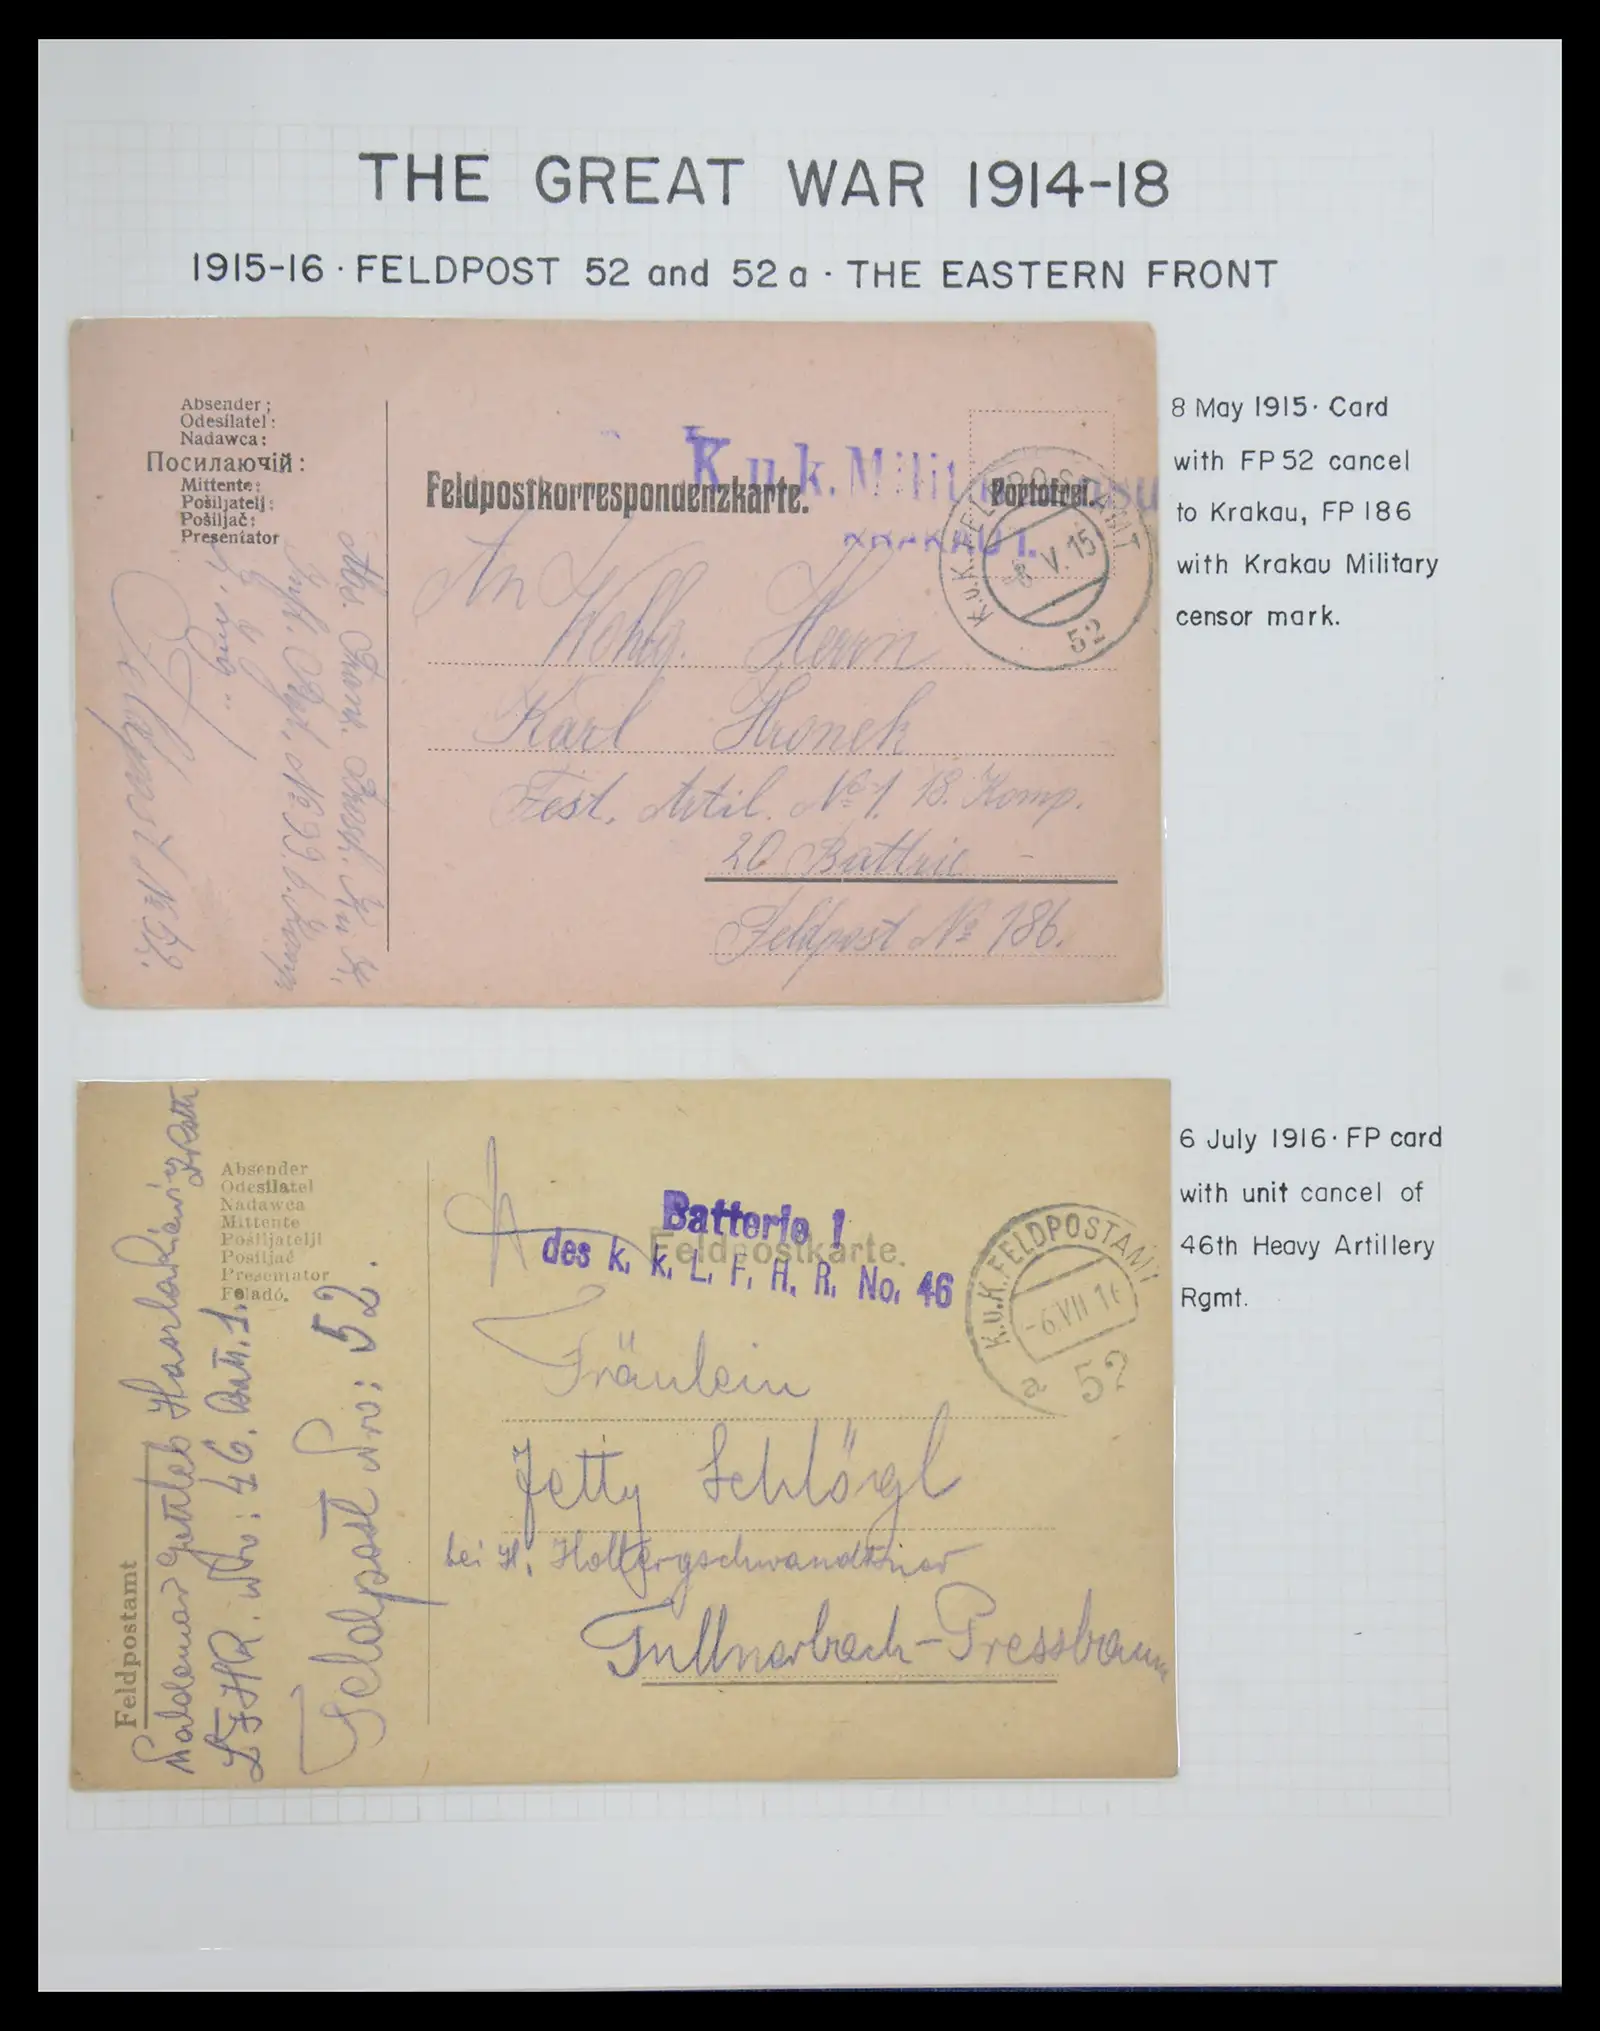 THE GREAT WAR 1914-18
1915-16 · FELDPOST 52 and 52a · THE EASTERN FRONT
Absender:
Odesílatel:
Nadawca:
Посилаючій:
Mittente:
Pošiljatelj:
Pošiljač:
Presentator
Feldpostkorrespondenzkarte.
Portofrei.
K.u.k. Milit
KRAKAU 1.
K.u.K. FELDPOSTAMT
8 V. 15
52
An
Wohlg. Herrn
Karl Hronek
Fest. Artil. № 1. 18. Komp.
20 Battrie
Feldpost № 186.
8 May 1915 · Card
with FP 52 cancel
to Krakau, FP 186
with Krakau Military
censor mark.
Absender
Odesílatel
Nadawca
Mittente
Pošiljatelji
Posiljač
Presentator
Feladó.
Feldpostamt
L.F.H.R. Nro: 46. Batt. 1.
Feldpost Nro: 52.
Feldpostkarte.
Batterie 1
des k. k. L. F. H. R. No. 46
K.u.K. FELDPOSTAMT
-6.VII 16
a 52
An
Fräulein
Jetty Schlögl
bei H.
Tullnerbach-Pressbaum
6 July 1916 · FP card
with unit cancel of
46th Heavy Artillery
Rgmt.